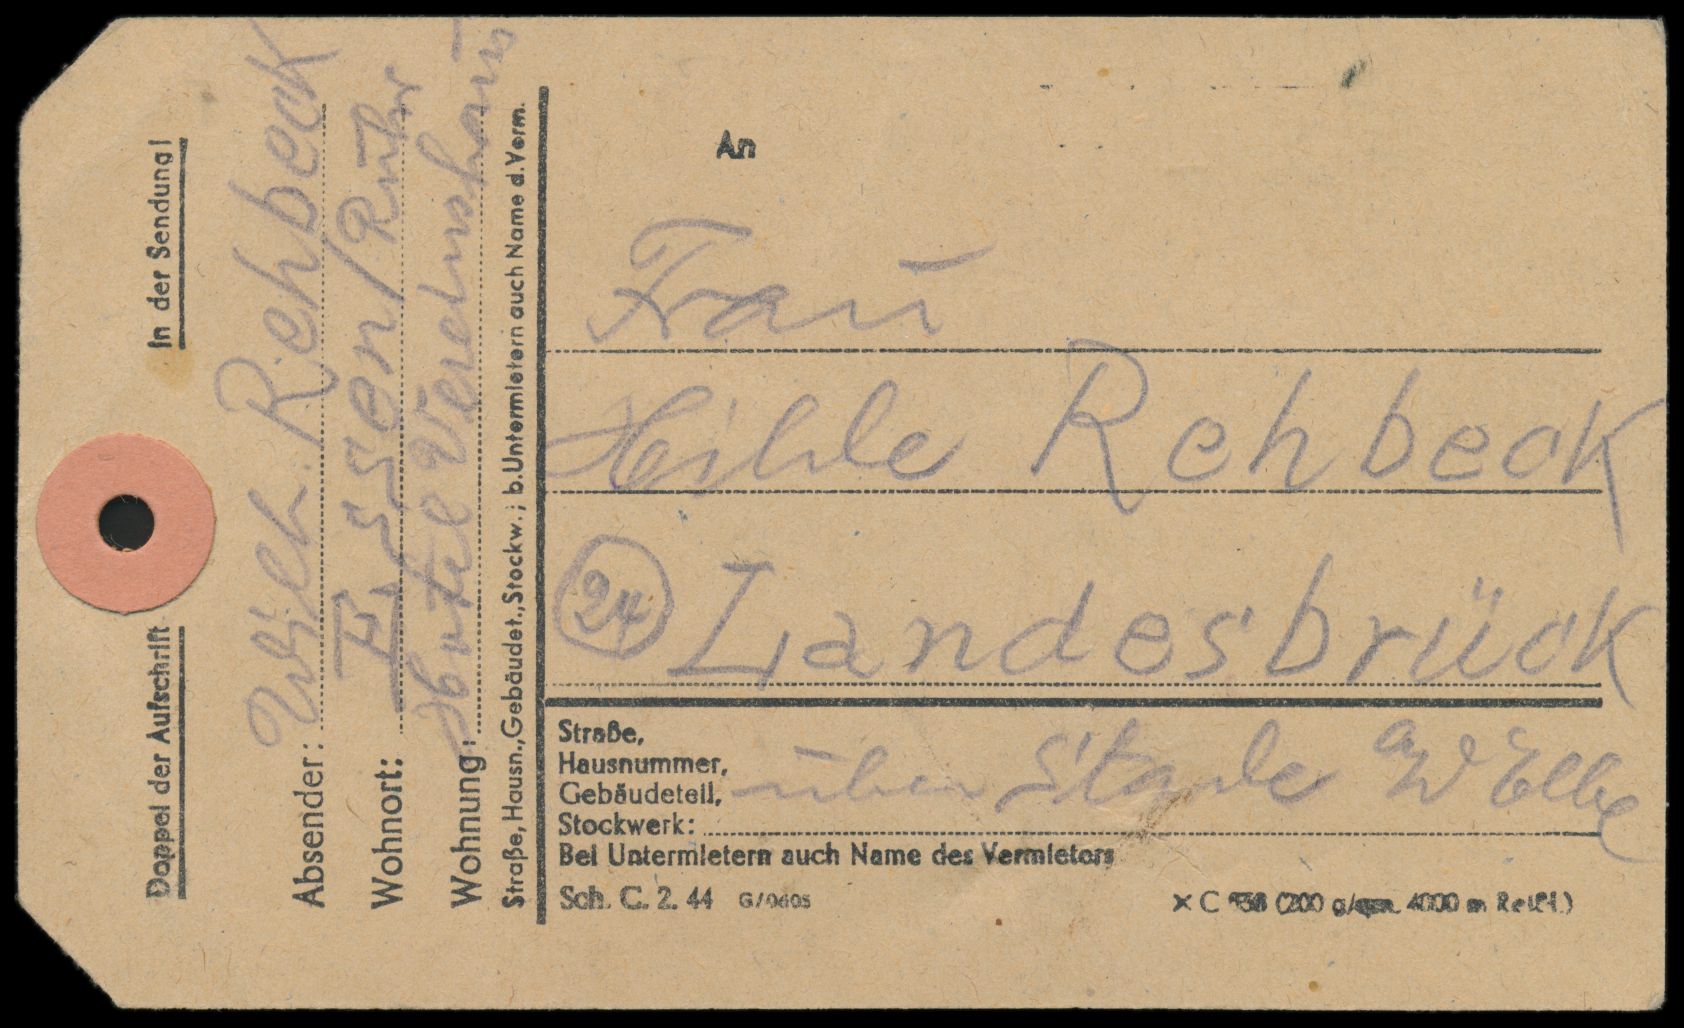 Doppel der Aufschrift In der Sendung!
Absender: Wilh. Rehbeck
Wohnort: Essen/Ruhr
Wohnung: Hotel Vereinshaus
Straße, Hausn., Gebäudet., Stockw.; b. Untermietern auch Name d. Verm.
An
Frau
Hilde Rehbeck
24 Landesbrück
über Stade a/d Elbe
Straße,
Hausnummer,
Gebäudeteil,
Stockwerk:
Bei Untermietern auch Name des Vermieters
Sch. C. 2. 44 G/0605
× C (200 g/qm. 4000